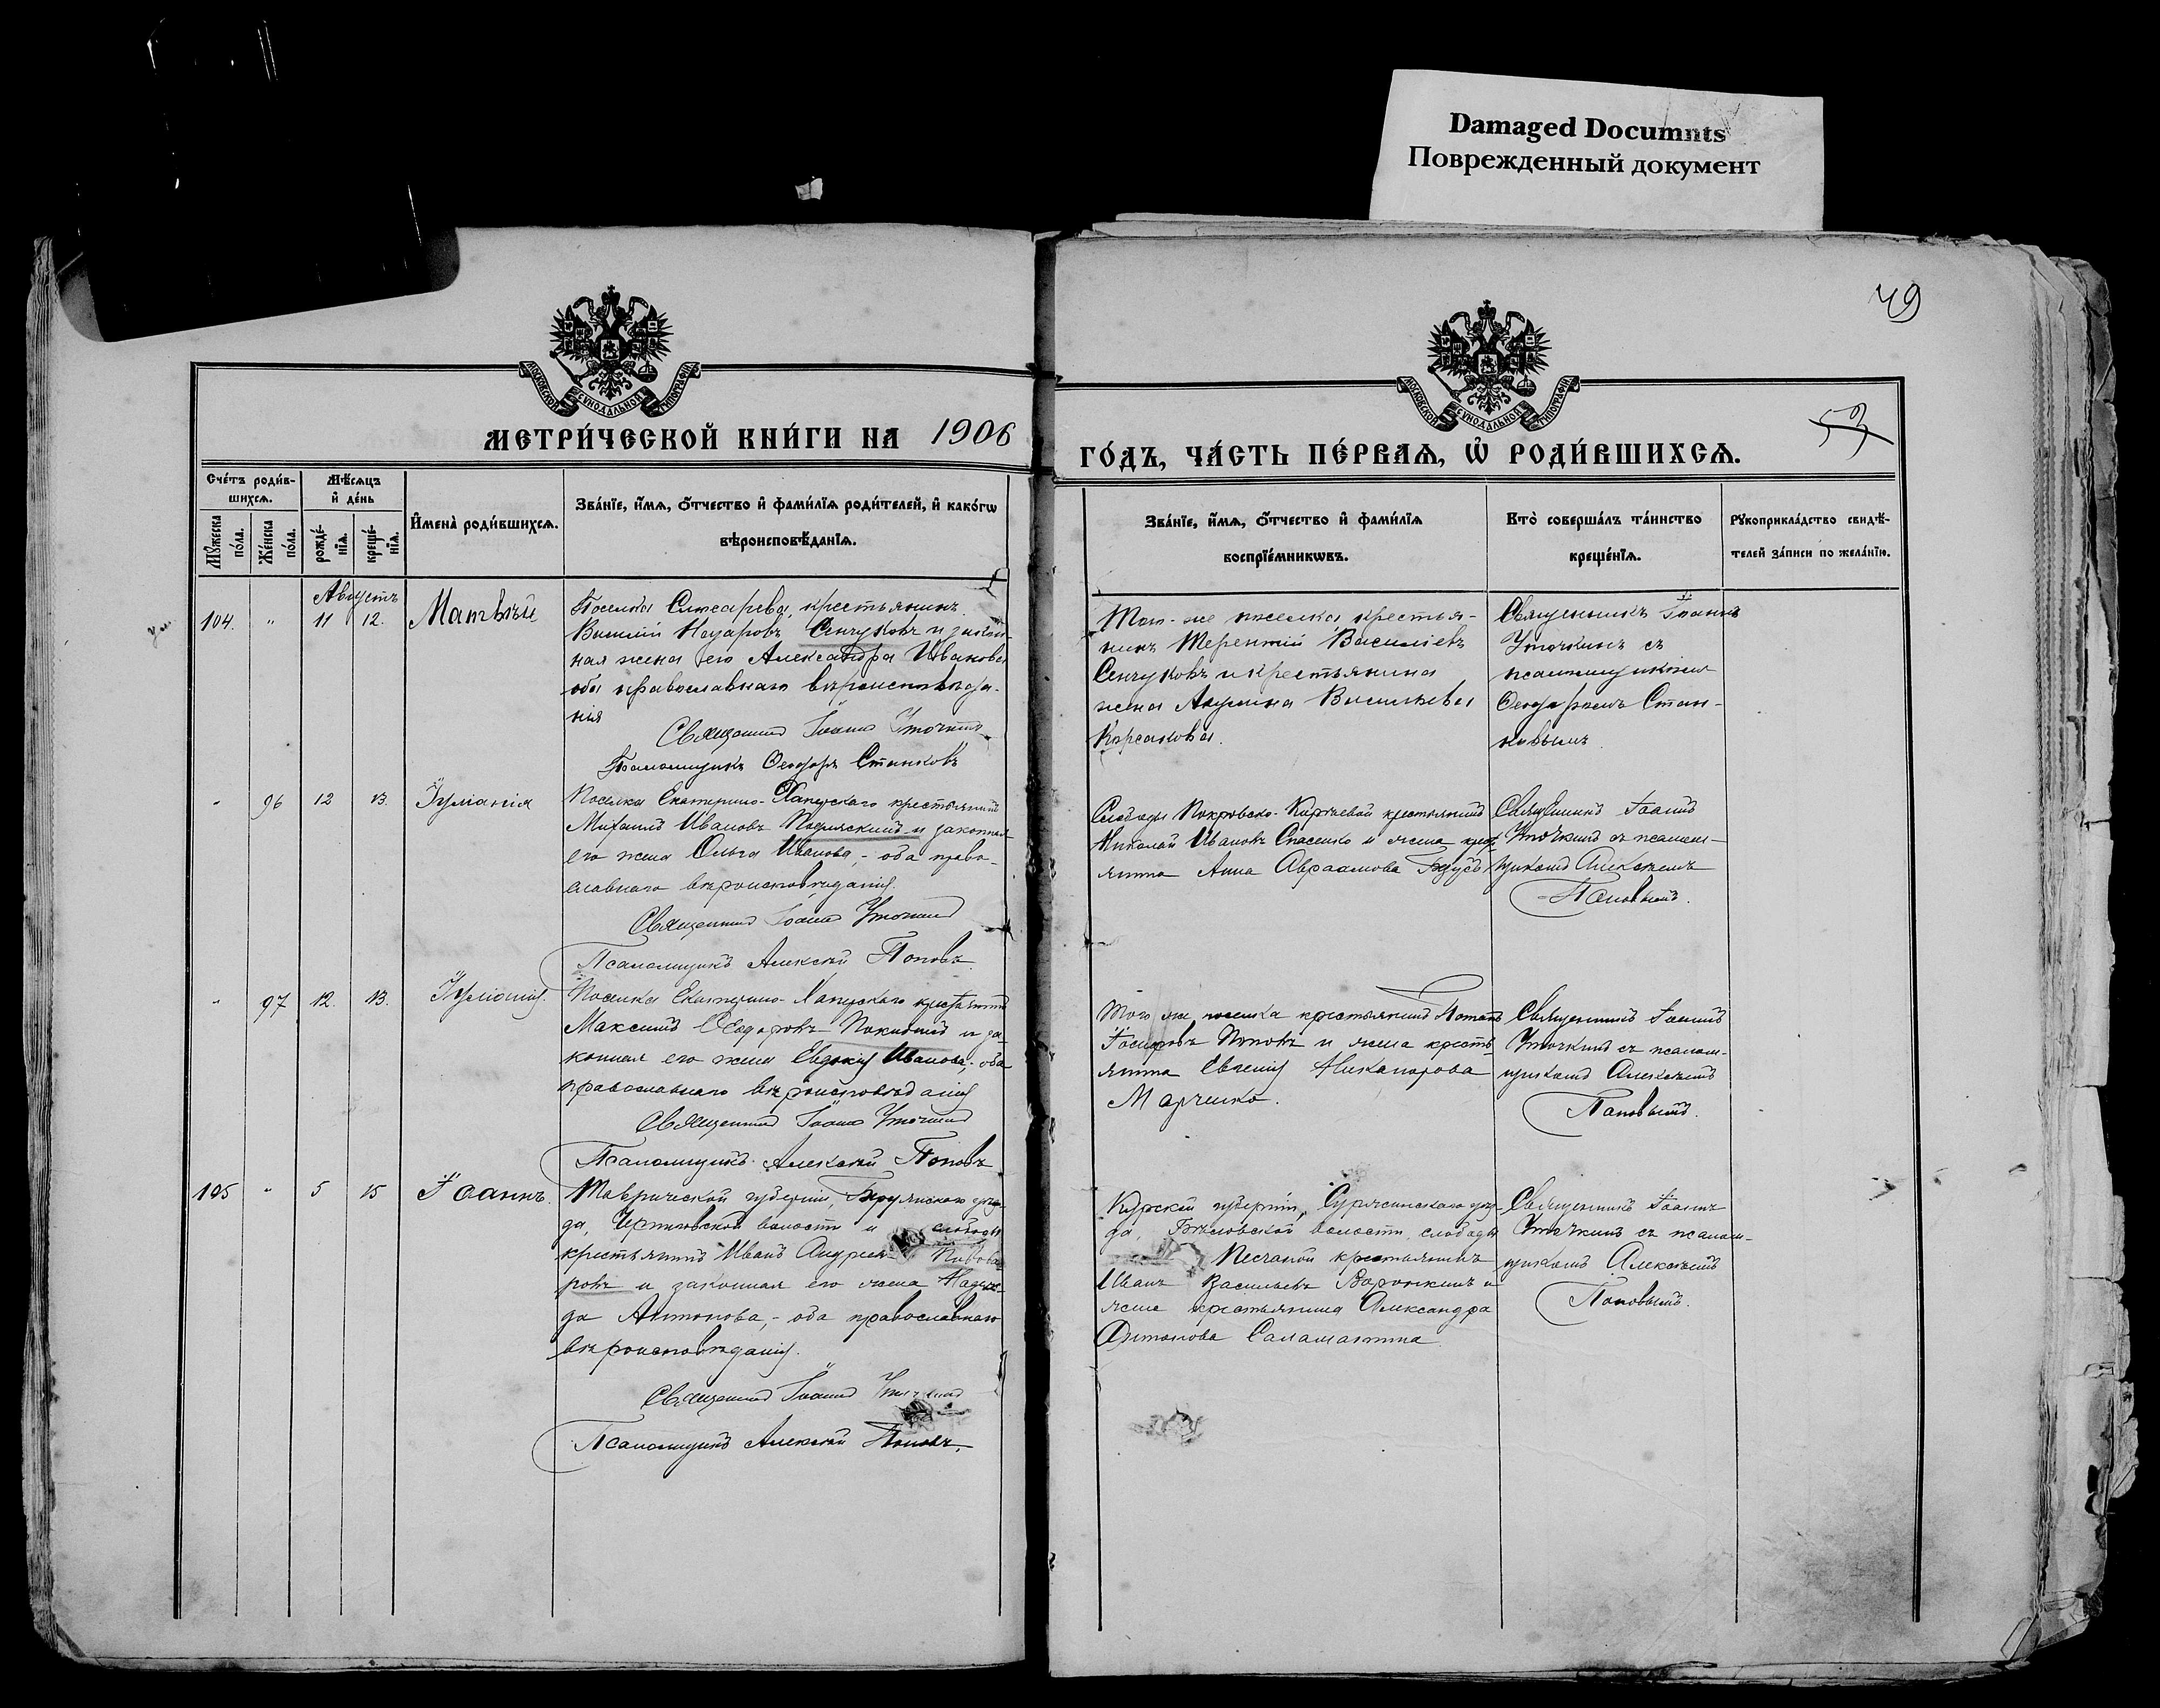 Damaged Documnts
Поврежденный документ
49
53
МОСКОВСКОЙ СѴНОДАЛЬНОЙ ТИПОГРАФІИ
МОСКОВСКОЙ СѴНОДАЛЬНОЙ ТИПОГРАФІИ
МЕТРИ́ЧЕСКОЙ КНИ́ГИ НА 1906
ГО́ДЪ, ЧА́СТЬ ПЕ́РВАѦ, Ѡ РОДИ́ВШИХСѦ.
Сче́тъ роди́в-
шихсѧ.
Мꙋжеска
по́ла.
Же́нска
по́ла.
Мѣ́сѧцъ
и де́нь
рожде́-
нїѧ.
креще́-
нїѧ.
И҆мена̀ роди́вшихсѧ.
Зва́нїе, и҆́мѧ, ѻ҆́тчество и҆ фами́лїѧ роди́телей, и҆ како́гѡ
вѣроисповѣ́данїѧ.
Зва́нїе, и҆́мѧ, ѻ҆́тчество и҆ фами́лїѧ
воспрїе́мникѡвъ.
Кто̀ соверша́лъ та́инство
креще́нїѧ.
Рꙋкоприкла́дство свидѣ́-
телей за́писи по жела́нїю.
Августъ
104. " 11 12. Матвѣй
Поселка Слюсарева, крестьянинъ
Василій Назаровъ Сенчуковъ и закон-
ная жена его Александра Иванова
оба православнаго вѣроисповѣда-
нія
Священникъ Іоаннъ Уточкинъ
Псаломщикъ Ѳеодоръ Станковъ
Того-же поселка, крестья-
нинъ Терентій Васильевъ
Сенчуковъ и крестьянина
жена Акулина Васильева
Корсакова.
Священникъ Іоаннъ
Уточкинъ съ
псаломщикомъ
Ѳеодоромъ Стан-
ковымъ.
" 96 12 13. Іуліанія
Поселка Екатерино-Хапрскаго крестьянинъ
Михаилъ Ивановъ и законная
его жена Ольга Иванова - оба право-
славнаго вѣроисповѣданія.
Священникъ Іоаннъ Уточкинъ
Псаломщикъ Алексѣй Поповъ
Слободы Покровско-Кирѣевой крестьянинъ
Николай Ивановъ Спасенко и жена крест
янина Анна Авраамова
Священникъ Іоаннъ
Уточкинъ съ псалом-
щикомъ Алексѣемъ
Поповымъ.
" 97 12. 13. Іуліанія.
Поселка Екатерино-Хапрскаго крестьянинъ
Максимъ Ѳеодоровъ и за-
конная его жена Евдокія Иванова, - оба
православнаго вѣроисповѣданія
Священникъ Іоаннъ Уточкинъ
Псаломщикъ Алексѣй Поповъ
Того же поселка крестьянинъ Потапъ
Поповъ и жена кресть-
янина Евгенія Никанорова
Марченко.
Священникъ Іоаннъ
Уточкинъ съ псалом-
щикомъ Алексѣемъ
Поповымъ.
105 " 5 15 Іоаннъ.
Таврической губерніи, Бердянскаго уѣз-
да, Черниговской волости и слободы
крестьянинъ Иванъ Андреев Пивова-
ровъ и законная его жена Надеж-
да Антонова, - оба православнаго
вѣроисповѣданія.
Священникъ Іоаннъ Уточкинъ
Псаломщикъ Алексѣй Поповъ.
Курской губерніи, Суджанскаго уѣз-
да, Бѣловской волости, слободы
Песчаной крестьянинъ
Иванъ Васильевъ Воронкинъ и
жена крестьянина Александра
Антонова Саламатина
Священникъ Іоаннъ
Уточкинъ съ псалом-
щикомъ Алексѣемъ
Поповымъ.